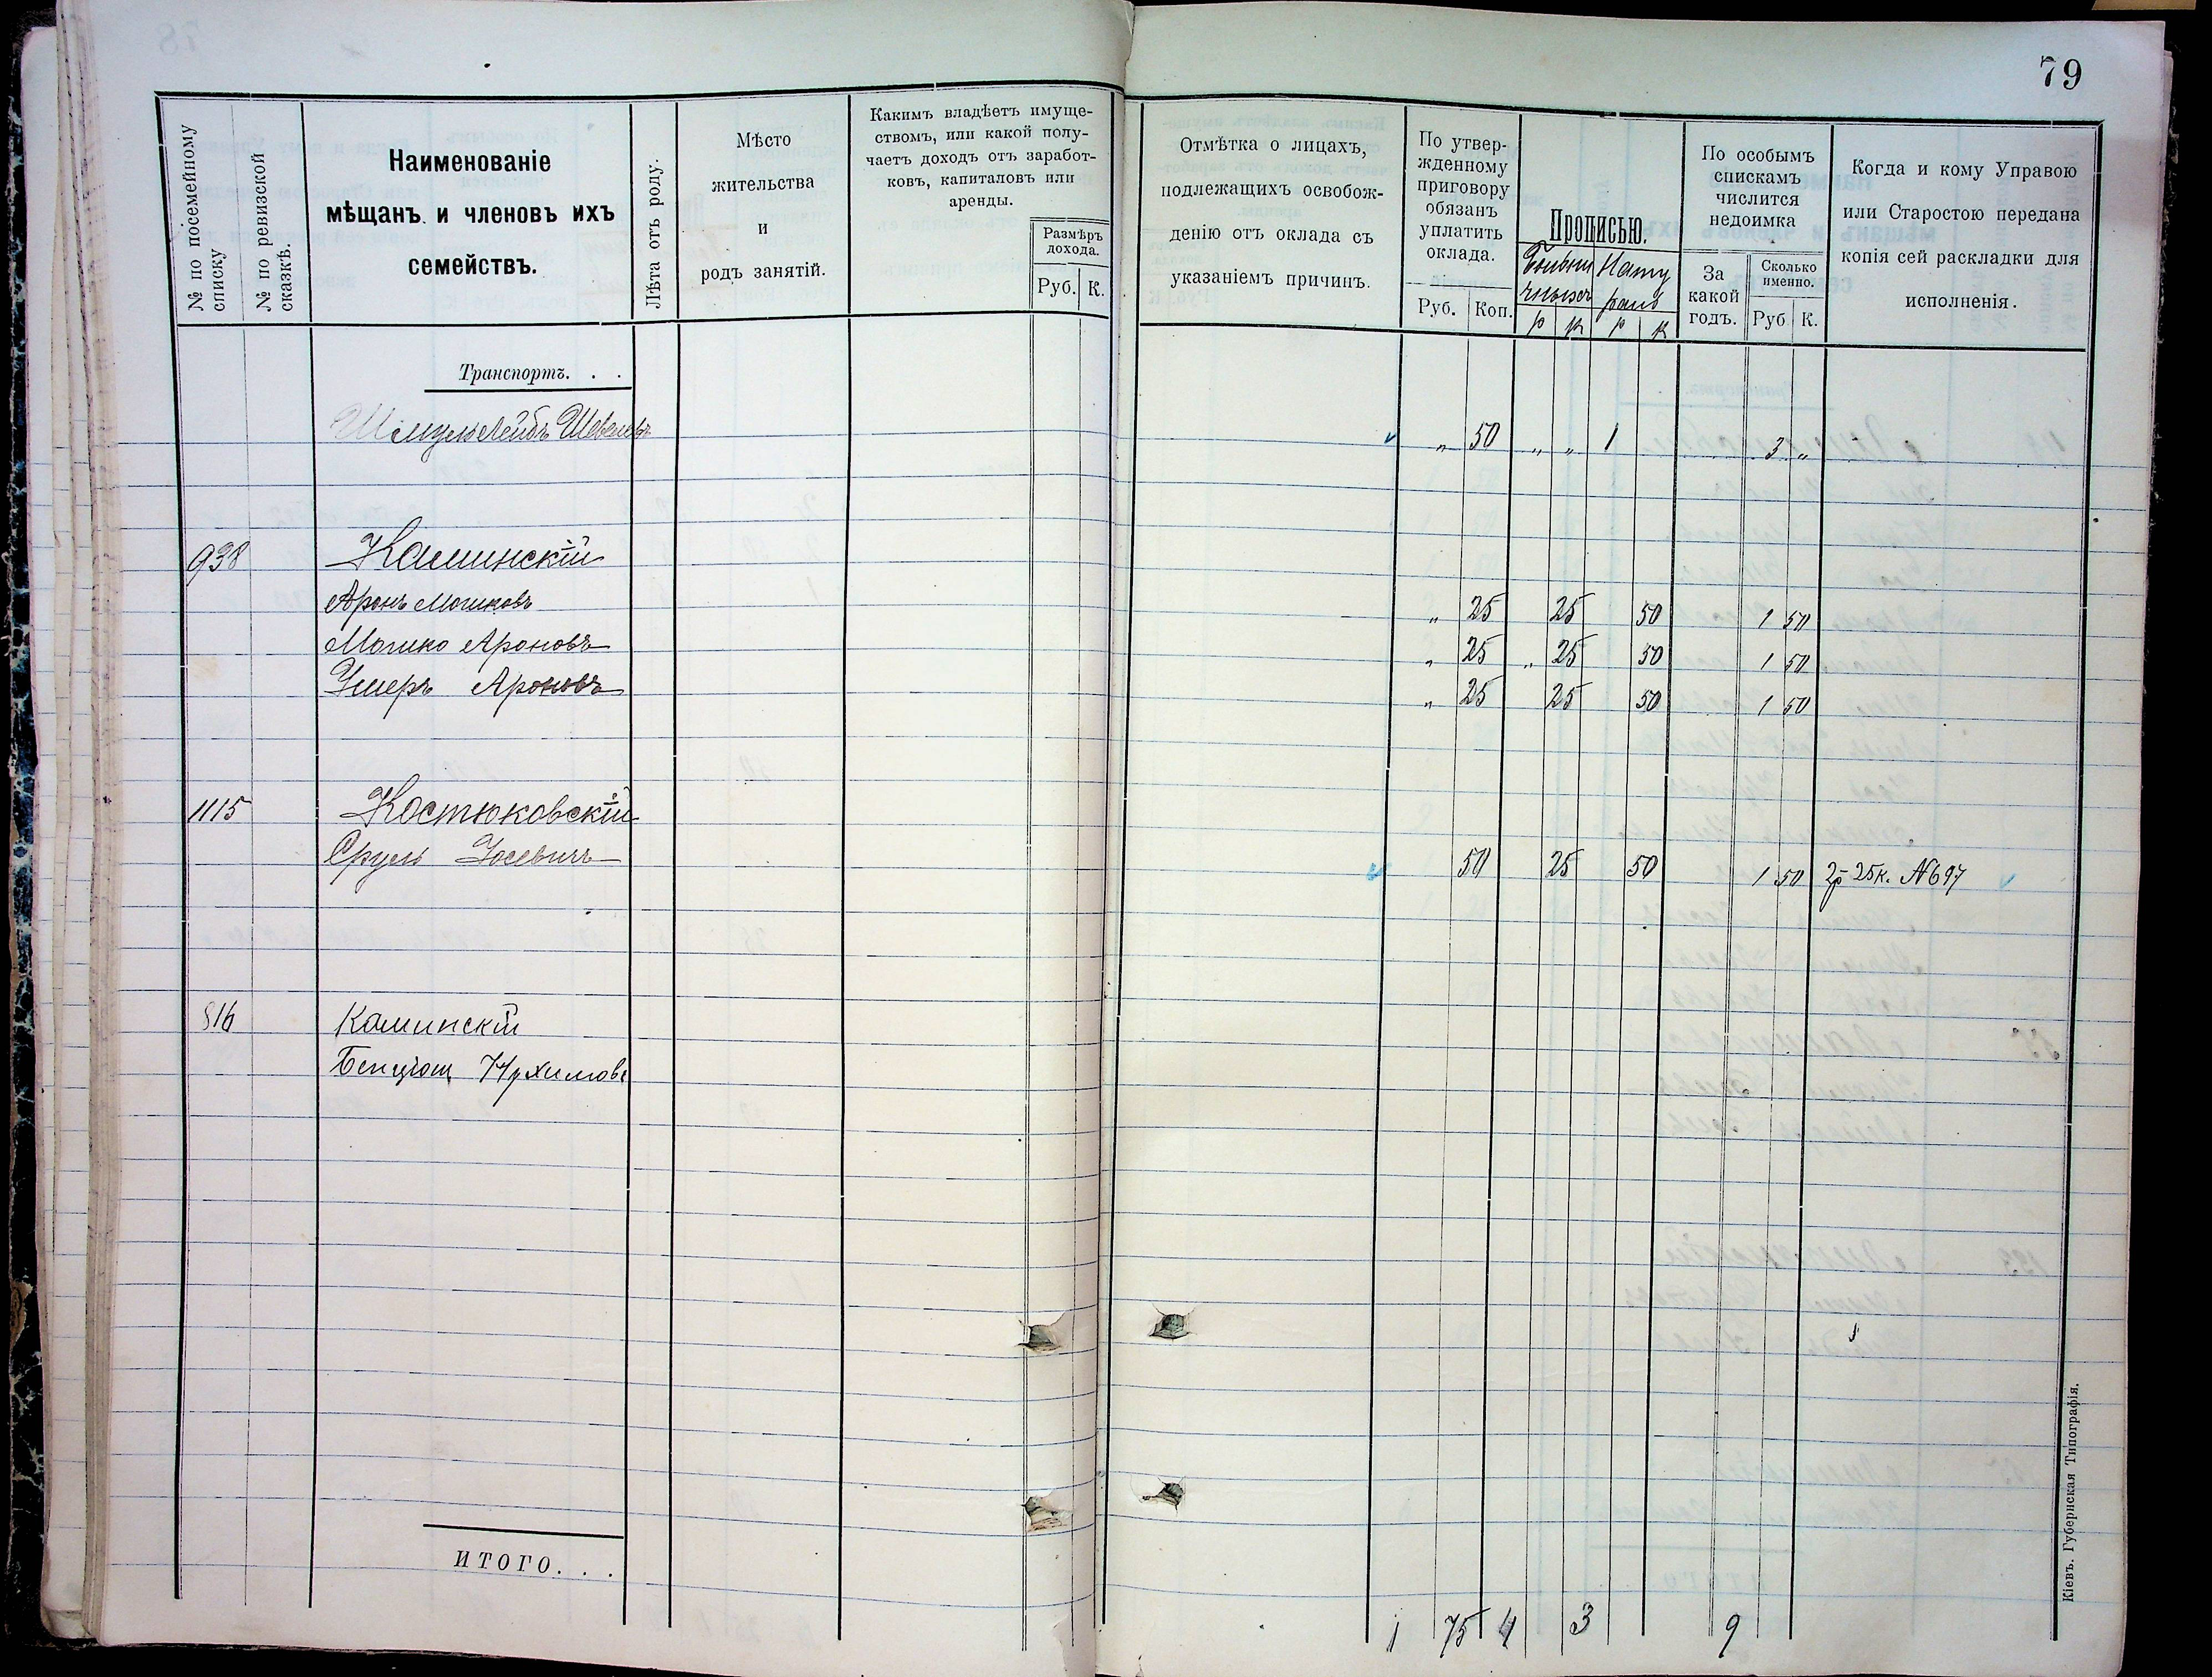 79
№ по посемейному списку
№ по ревизской сказкѣ.
Наименованіе
мѣщанъ и членовъ ихъ
семействъ.
Лѣта отъ роду.
Мѣсто
жительства
и
родъ занятій.
Какимъ владѣетъ имуще-
ствомъ, или какой полу-
чаетъ доходъ отъ заработ-
ковъ, капиталовъ или
аренды.
Размѣръ
дохода.
Руб. К.
Отмѣтка о лицахъ,
подлежащихъ освобож-
денію отъ оклада съ
указаніемъ причинъ.
По утвер-
жденному
приговору
обязанъ
уплатить
оклада.
Руб. Коп.
Прописью.
Нату
рал
р к р к
По особымъ
спискамъ
числится
недоимка
За
какой
годъ.
Сколько
именно.
Руб К.
Когда и кому Управою
или Старостою передана
копія сей раскладки для
исполненія.
Транспортъ. . .
Шмуль Лейбъ Шевелевъ „ 50 „ „ 1 3 „
938 Каминскій
Аронъ Мошковъ „ 25 25 50 1 50
Мошко Ароновъ „ 25 „ 25 50 1 50
Умеръ Ароновъ „ 25 25 50 1 50
1115 Костюковскій
Сруль Іосевичъ 50 25 50 1 50 2р 25к. №697
816 Каминскій
Бенціон
ИТОГО. . .
1 75 4 3 9
Кіевъ. Губернская Типографія.